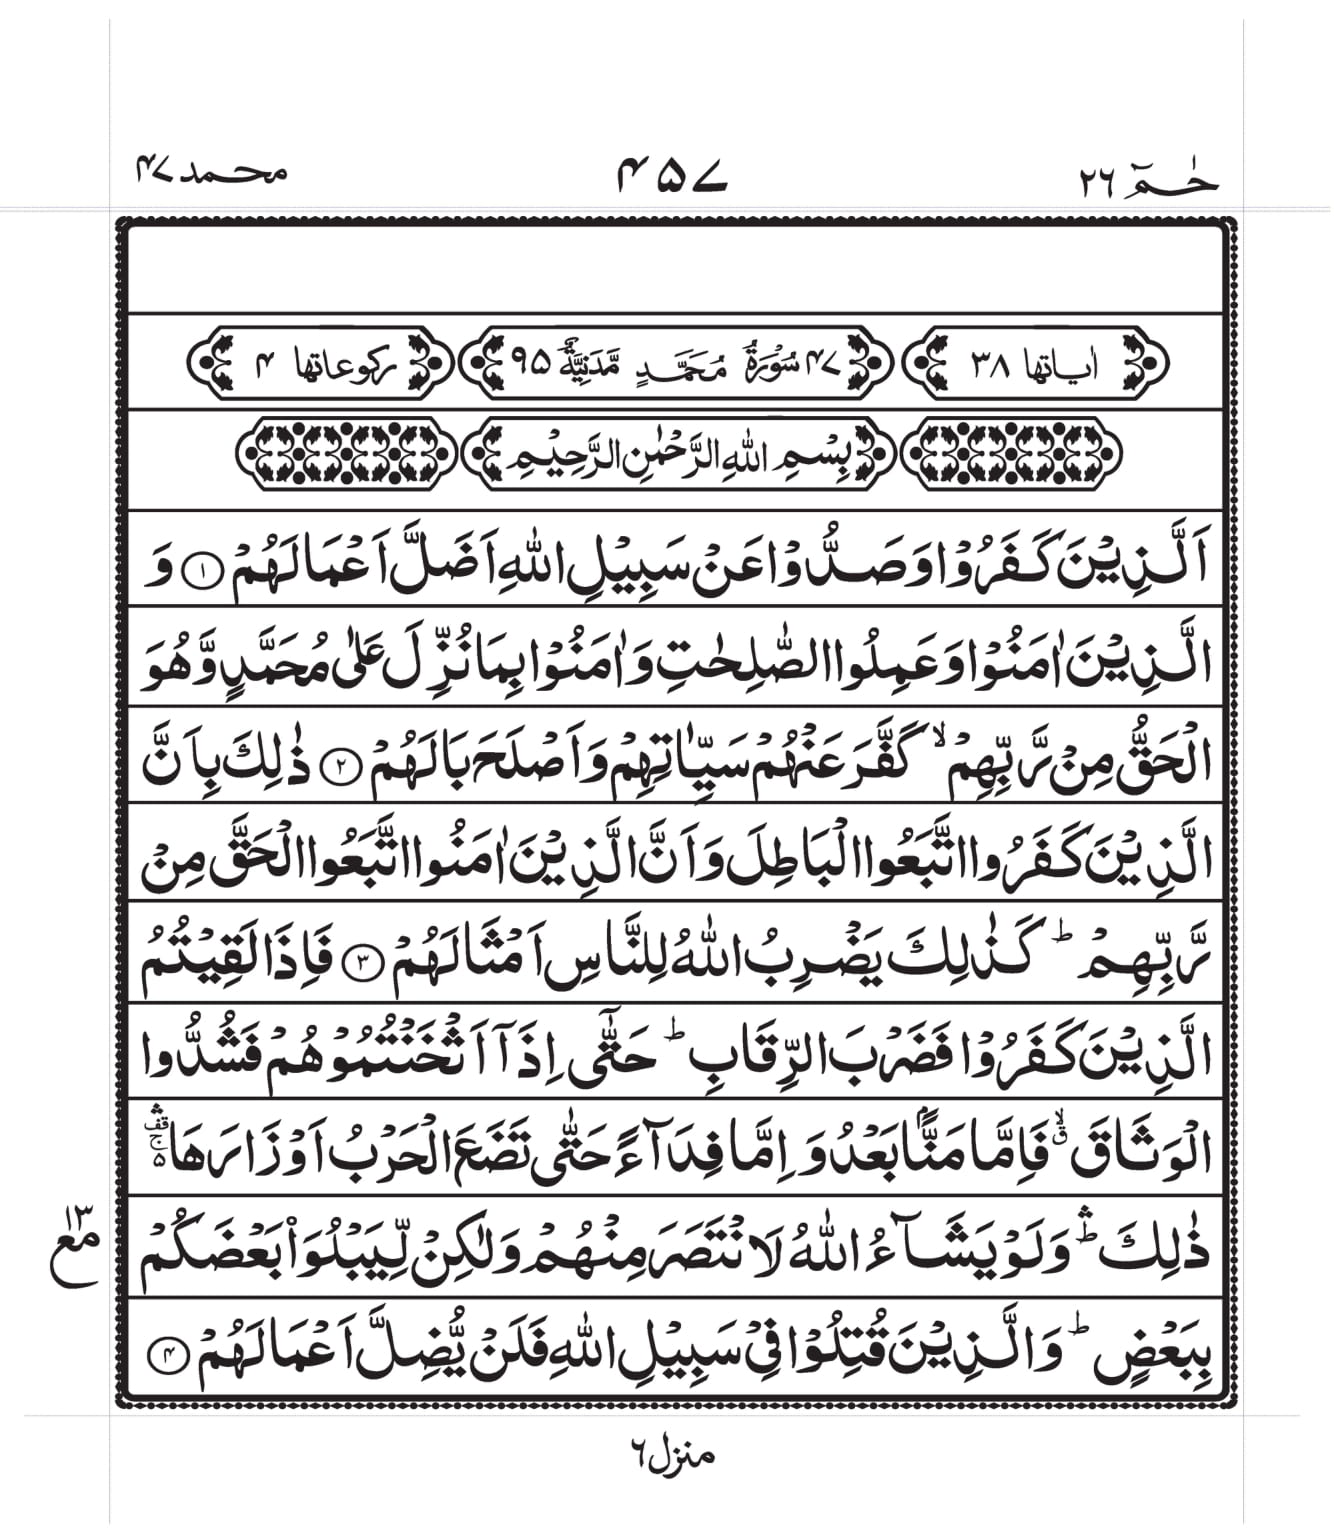 حٰمٓ ٢٦ ۴۵۷ محمد ۴۷
اٰیاتها ٣٨ ۴۷ سُوْرَةُ مُحَمَّدٍ مَّدَنِيَّةٌ ٩۵ رکوعاتها ۴
بِسْمِ اللّٰهِ الرَّحْمٰنِ الرَّحِيْمِ
اَلَّذِيْنَ كَفَرُوْا وَصَدُّوْا عَنْ سَبِيْلِ اللّٰهِ اَضَلَّ اَعْمَالَهُمْ ۝١ وَ
الَّذِيْنَ اٰمَنُوْا وَعَمِلُوا الصّٰلِحٰتِ وَاٰمَنُوْا بِمَا نُزِّلَ عَلٰى مُحَمَّدٍ وَّهُوَ
الْحَقُّ مِنْ رَّبِّهِمْ ۙ كَفَّرَ عَنْهُمْ سَيِّاٰتِهِمْ وَاَصْلَحَ بَالَهُمْ ۝٢ ذٰلِكَ بِاَنَّ
الَّذِيْنَ كَفَرُوا اتَّبَعُوا الْبَاطِلَ وَاَنَّ الَّذِيْنَ اٰمَنُوا اتَّبَعُوا الْحَقَّ مِنْ
رَّبِّهِمْ ؕ كَذٰلِكَ يَضْرِبُ اللّٰهُ لِلنَّاسِ اَمْثَالَهُمْ ۝٣ فَاِذَا لَقِيْتُمُ
الَّذِيْنَ كَفَرُوْا فَضَرْبَ الرِّقَابِ ؕ حَتّٰٓى اِذَاۤ اَثْخَنْتُمُوْهُمْ فَشُدُّوا
الْوَثَاقَ ۙ ق فَاِمَّا مَنًّۢا بَعْدُ وَاِمَّا فِدَآءً حَتّٰى تَضَعَ الْحَرْبُ اَوْزَارَهَا ۛ۫ ۚ قف ۵
ذٰلِكَ ۛؕ وَلَوْ يَشَآءُ اللّٰهُ لَانْتَصَرَ مِنْهُمْ وَلٰكِنْ لِّيَبْلُوَا۟ بَعْضَكُمْ
١٣ مع
بِبَعْضٍ ؕ وَالَّذِيْنَ قُتِلُوْا فِيْ سَبِيْلِ اللّٰهِ فَلَنْ يُّضِلَّ اَعْمَالَهُمْ ۝۴
منزل ٦